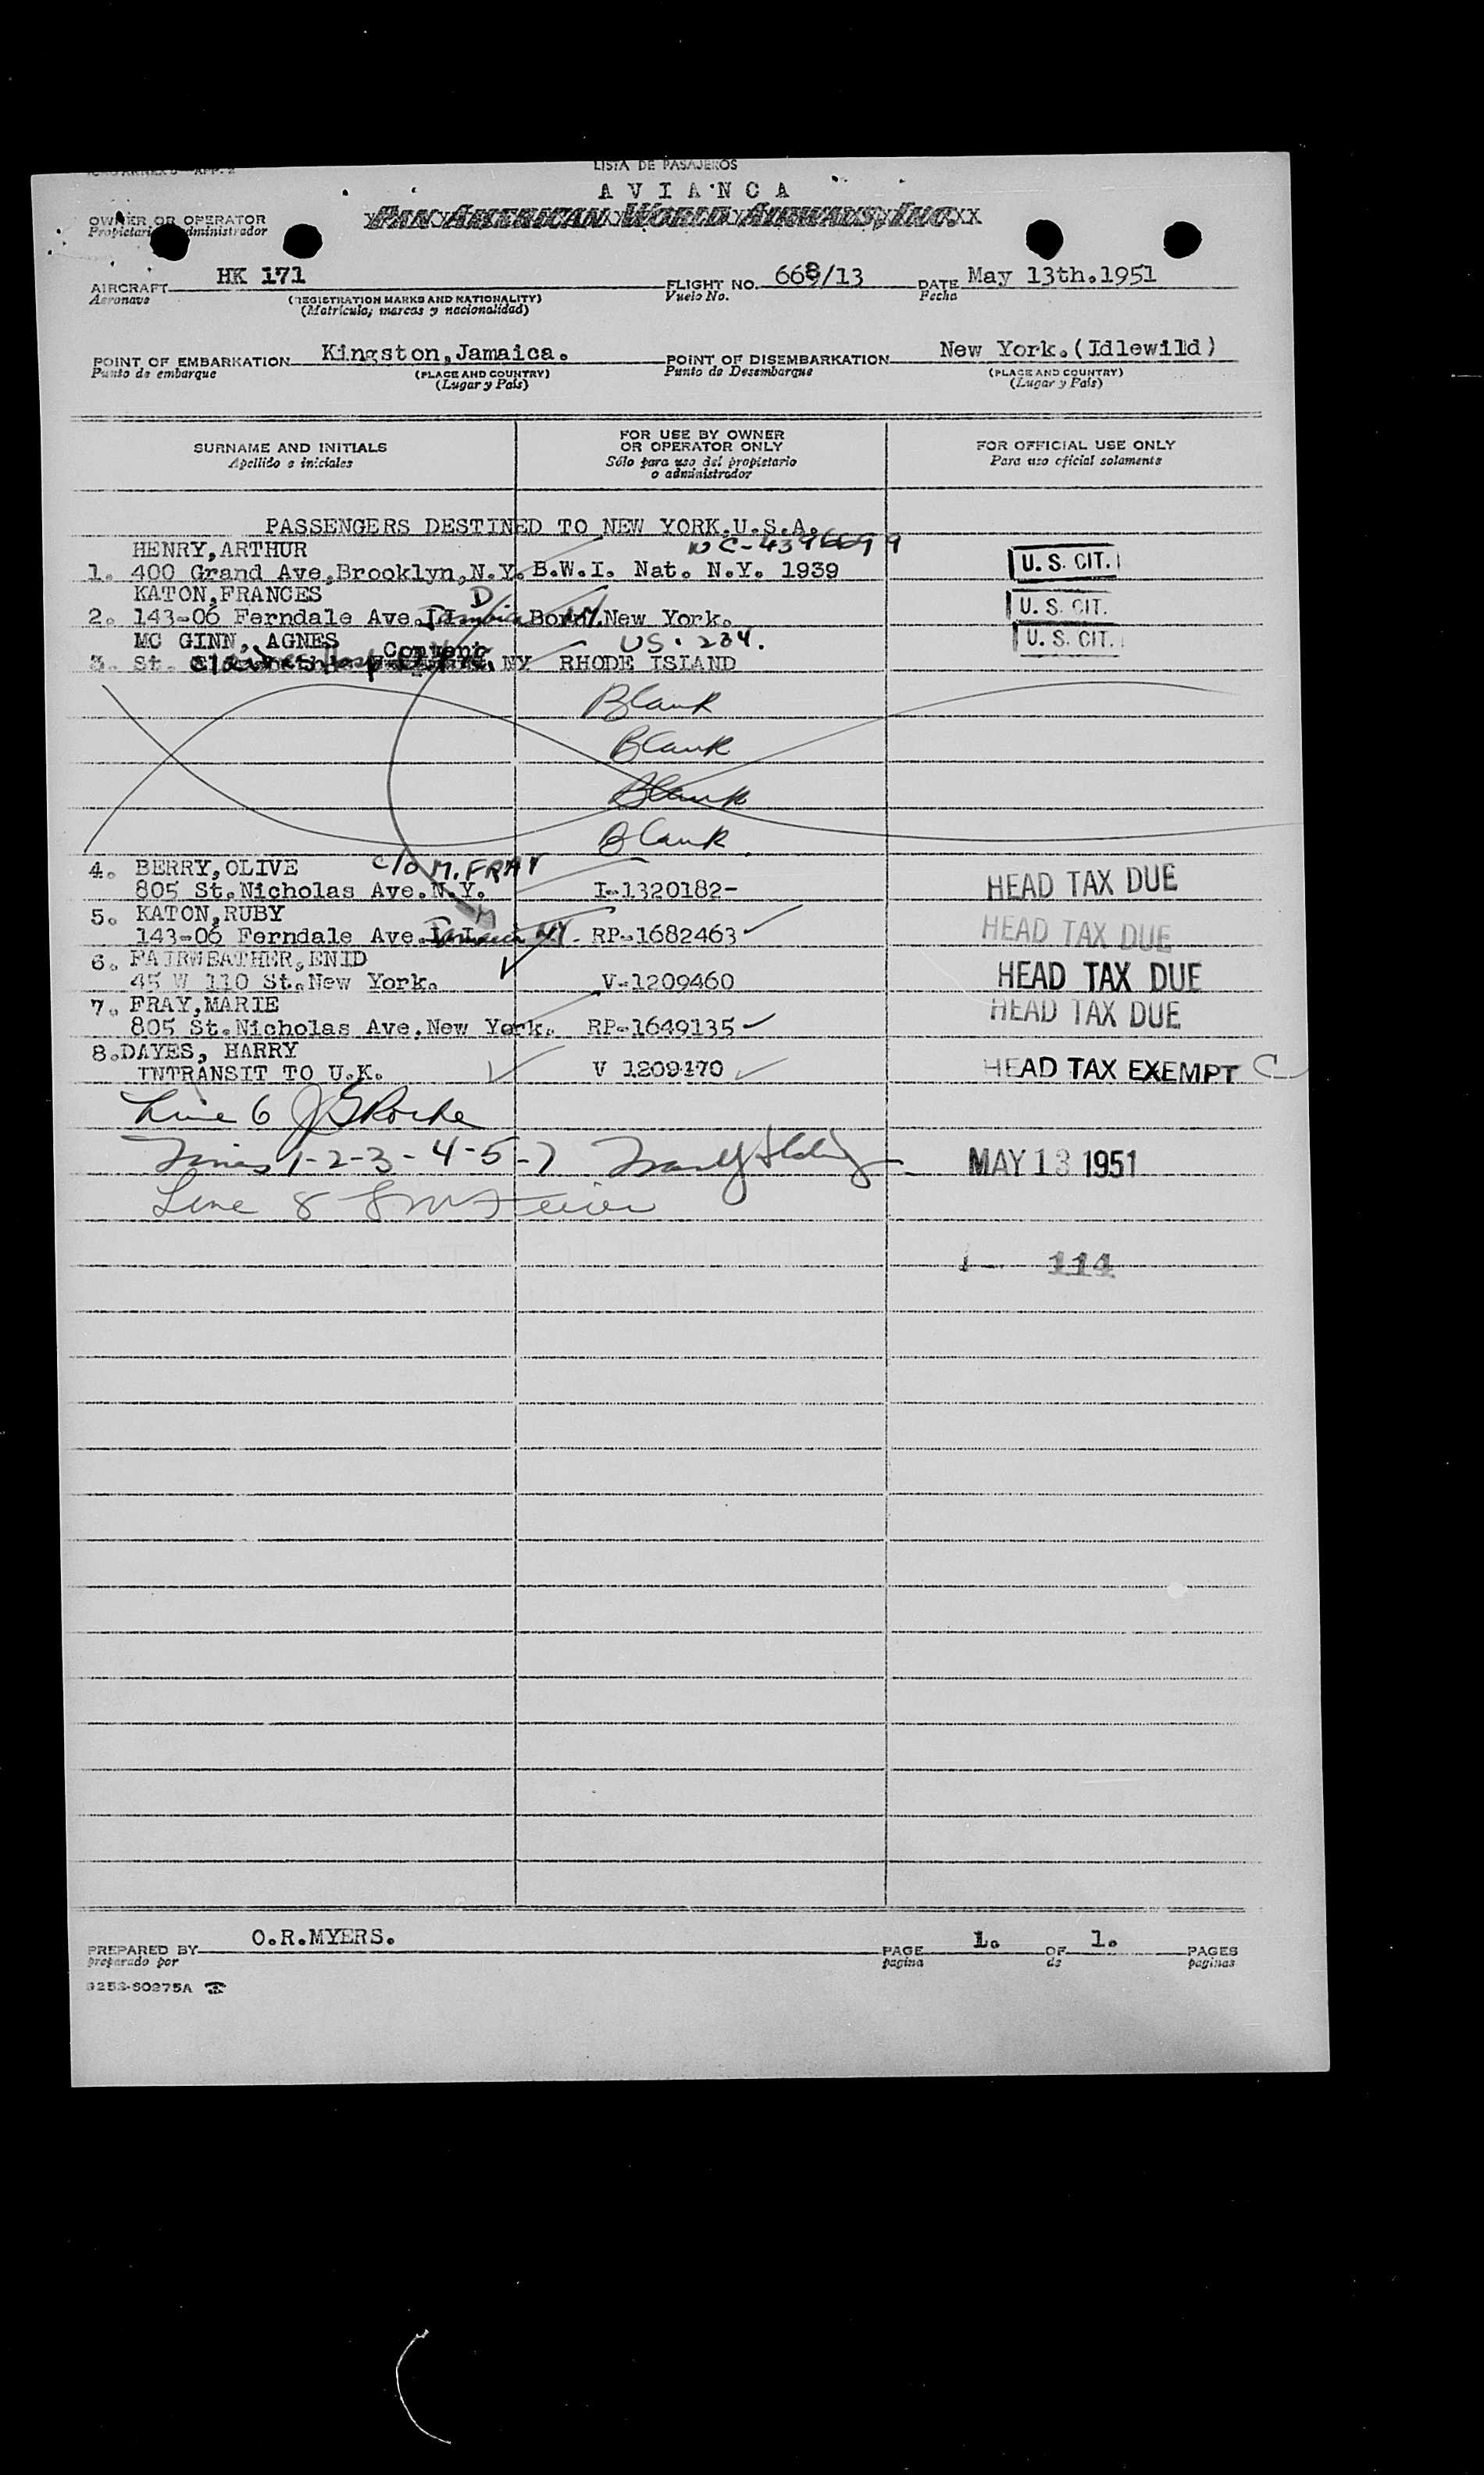 LISTA DE PASAJEROS
AVIANCA
OWNER OR OPERATOR PAN AMERICAN WORLD AIRWAYS, INC.
AIRCRAFT HK 171 FLIGHT NO. 668/13 DATE May 13th.1951
Aeronave (REGISTRATION MARKS AND NATIONALITY) Vuelo No. Fecha
(Matrícula, marcas y nacionalidad)
POINT OF EMBARKATION Kingston,Jamaica. POINT OF DISEMBARKATION New York.(Idlewild)
Punto de embarque (PLACE AND COUNTRY) Punto de Desembarque (PLACE AND COUNTRY)
(Lugar y País) (Lugar y País)
SURNAME AND INITIALS FOR USE BY OWNER OR OPERATOR ONLY FOR OFFICIAL USE ONLY
Apellido e iniciales Sólo para uso del propietario o administrador Para uso oficial solamente
PASSENGERS DESTINED TO NEW YORK.U.S.A.
HENRY,ARTHUR
1. 400 Grand Ave,Brooklyn,N.Y. B.W.I. Nat. N.Y. 1939 U. S. CIT.
KATON,FRANCES D
2. 143-06 Ferndale Ave. Born New York. U. S. CIT.
MC GINN, AGNES Convent US. 234.
3. St. NY RHODE ISLAND U. S. CIT.
Blank
Blank
Blank
Blank
4. BERRY,OLIVE c/o M. FRAY
805 St.Nicholas Ave.N.Y. I-1320182- HEAD TAX DUE
5. KATON,RUBY M
143-06 Ferndale Ave. NY. RP-1682463 HEAD TAX DUE
6. FAIRWEATHER,ENID
45 W 110 St.New York. V-1209460 HEAD TAX DUE
7. FRAY,MARIE
805 St.Nicholas Ave.New York. RP-1649135 HEAD TAX DUE
8.DAYES, HARRY
INTRANSIT TO U.K. V 1209170 HEAD TAX EXEMPT C
Line 6
Lines 1-2-3-4-5-7 MAY 13 1951
Line 8
114
PREPARED BY O.R.MYERS. PAGE 1. OF 1. PAGES
preparado por pagina de paginas